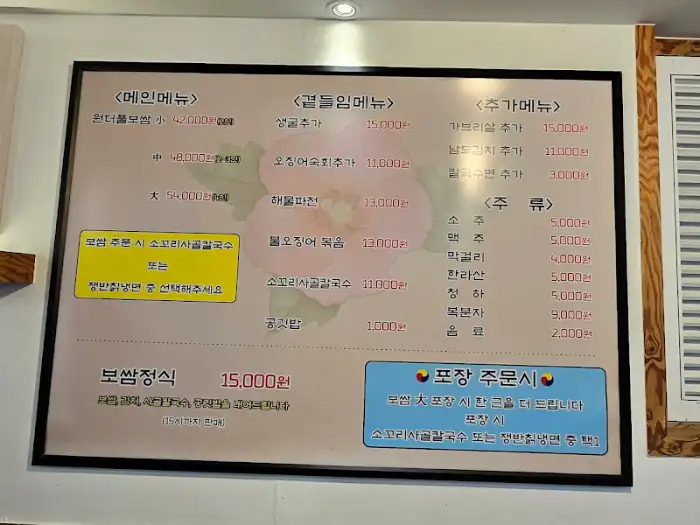 <메인메뉴>
원더풀보쌈 小 42,000원(2인)
中 48,000원(2~3인)
大 54,000원(4인)
보쌈 주문 시 소꼬리사골칼국수
또는
쟁반칡냉면 중 선택해주세요
<곁들임메뉴>
생굴추가 15,000원
오징어숙회추가 11,000원
해물파전 13,000원
불오징어 볶음 13,000원
소꼬리사골칼국수 11,000원
공깃밥 1,000원
<추가메뉴>
가브리살 추가 15,000원
남도김치 추가 11,000원
칼국수면 추가 3,000원
<주 류>
소 주 5,000원
맥 주 5,000원
막걸리 4,000원
한라산 5,000원
청 하 5,000원
복분자 9,000원
음 료 2,000원
보쌈정식 15,000원
보쌈, 김치, 사골칼국수, 공깃밥을 내어드립니다
(15시까지 판매)
포장 주문시
보쌈 大 포장 시 한 근을 더 드립니다
포장 시
소꼬리사골칼국수 또는 쟁반칡냉면 중 택1